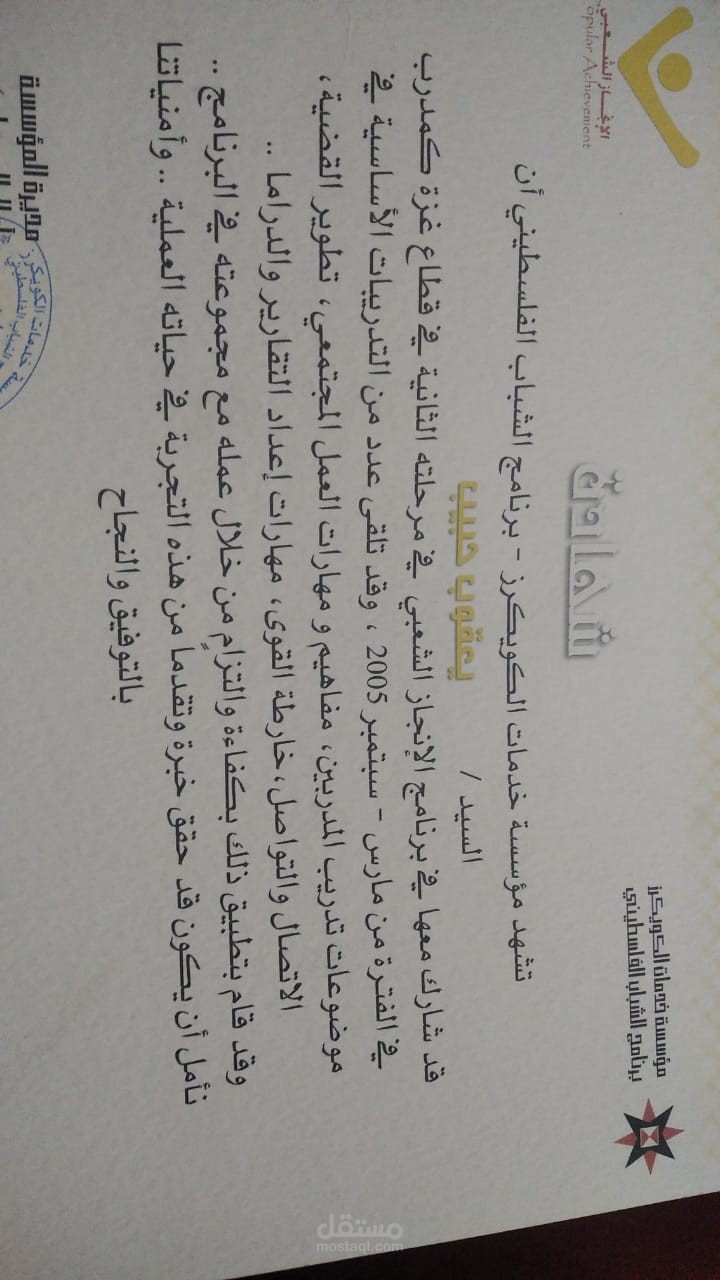 مؤسسة خدمات الكويكرز
برنامج الشباب الفلسطيني
الإنجاز الشعبي
opular Achievement
شهادة
تشهد مؤسسة خدمات الكويكرز - برنامج الشباب الفلسطيني أن
السيد / يعقوب حبيب
قد شارك معها في برنامج الإنجاز الشعبي في مرحلته الثانية في قطاع غزة كمدرب
في الفترة من مارس - سبتمبر 2005 ، وقد تلقى عدد من التدريبات الأساسية في
موضوعات تدريب المدربين، مفاهيم و مهارات العمل المجتمعي، تطوير القضية،
الاتصال والتواصل، خارطة القوى، مهارات إعداد التقارير والدراما ..
وقد قام بتطبيق ذلك بكفاءة والتزام من خلال عمله مع مجموعته في البرنامج ..
نأمل أن يكون قد حقق خبرة وتقدما من هذه التجربة في حياته العملية .. وأمنياتنا
بالتوفيق والنجاح
مديرة المؤسسة
خدمات الكويكرز
مستقل
mostaql.com